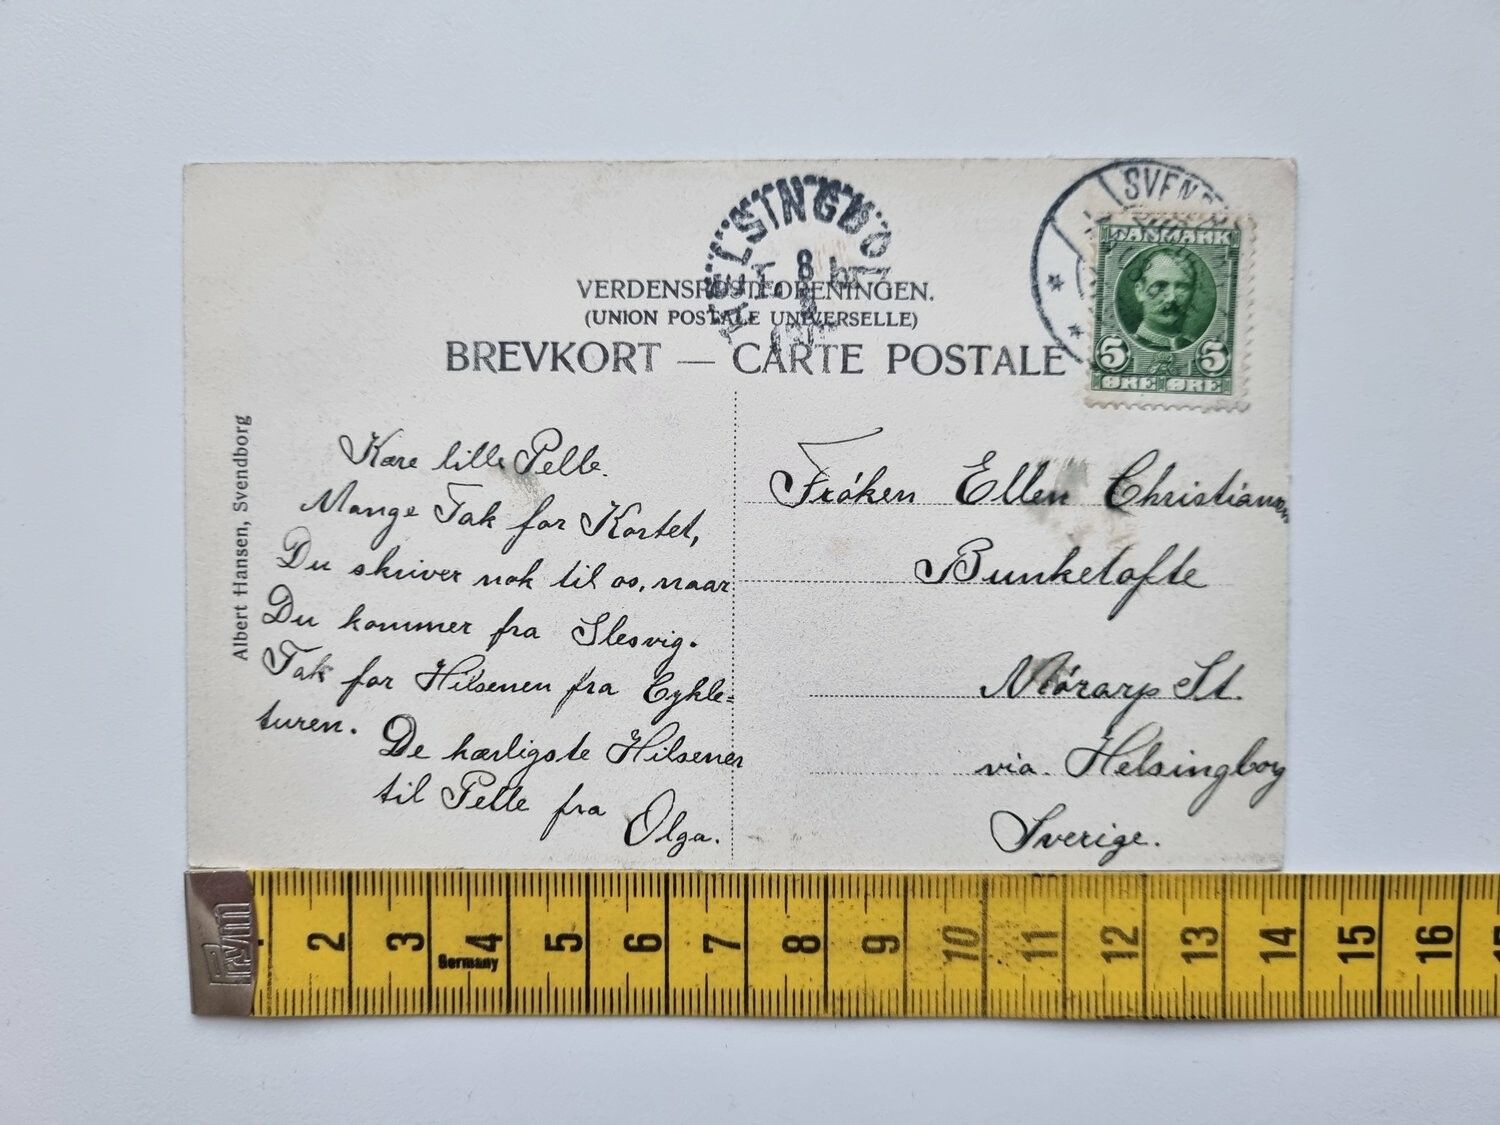 HELSINGBO
8
SVEN
DANMARK
5 5
ØRE ØRE
VERDENSPOSTFORENINGEN.
(UNION POSTALE UNIVERSELLE)
BREVKORT — CARTE POSTALE
Albert Hansen, Svendborg
Kære lille Pelle.
Mange Tak for Kortet,
Du skriver nok til os, naar
Du kommer fra Slesvig.
Tak for Hilsenen fra Cykle=
turen.
De kærligste Hilsener
til Pelle fra
Olga.
Frøken Ellen Christiansen
Bunketofte
Mörarp St.
via. Helsingborg
Sverige.
2 3 4 5 6 7 8 9 10 11 12 13 14 15 16
Germany